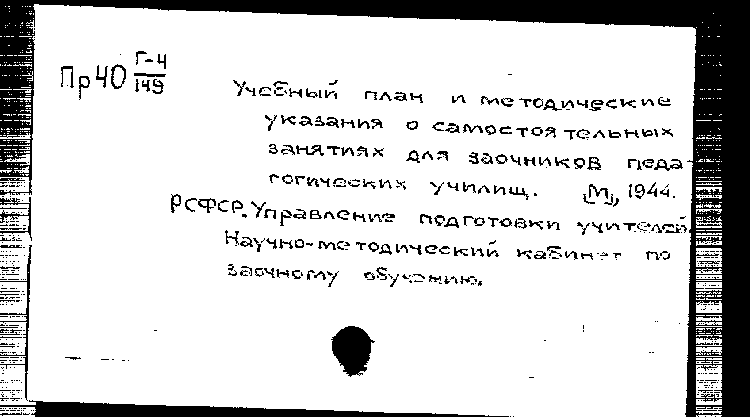 Пр40 Г-4/149
Учебный план и методические
указания о самостоятельных
занятиях для заочников педа-
гогических училищ. [М], 1944.
РСФСР. Управление подготовки учителей.
Научно-методический кабинет по
заочному обучению.